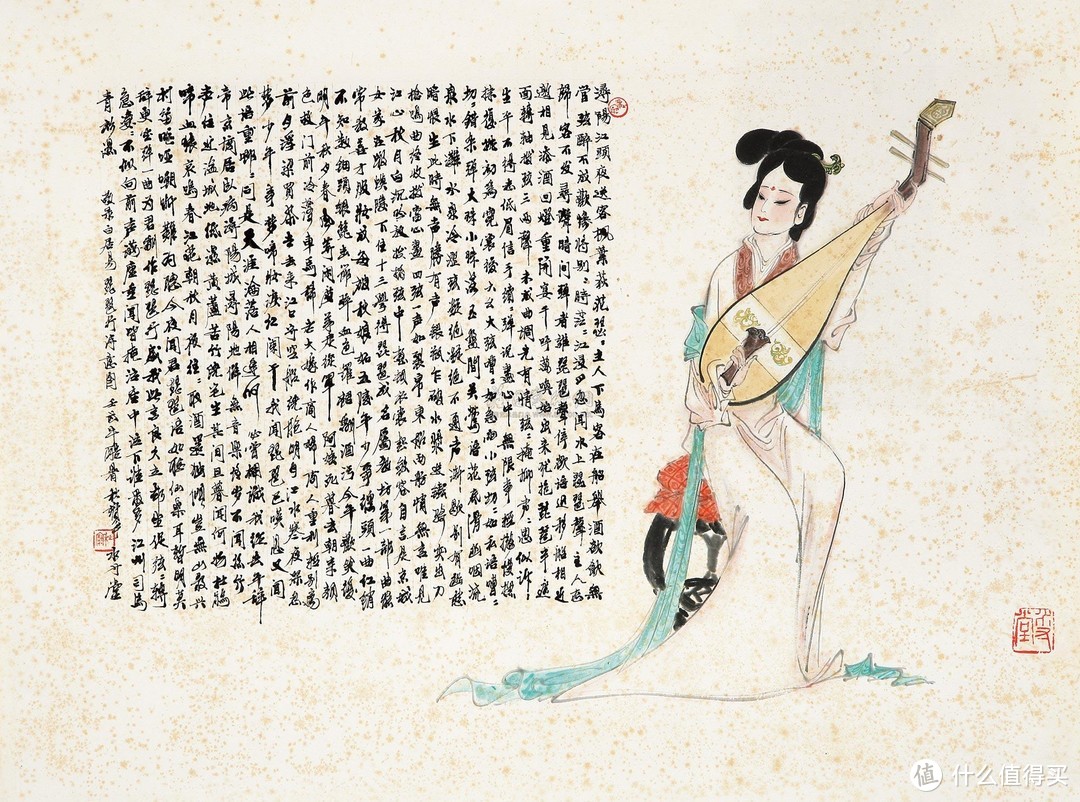 潯陽江頭夜送客楓葉荻花瑟ミ主人下馬客在船舉酒欲飲無
管弦醉不成歡慘將別ミ時茫ミ江浸月忽聞水上琵琶聲主人忘
歸客不發尋聲暗問彈者誰琵琶聲停欲語遲移船相近
邀相見添酒回燈重開宴千呼萬喚始出來猶抱琵琶半遮
面轉軸撥弦三兩聲未成曲調先有情弦ミ掩抑聲ミ思似訴
生平不得志低眉信手續ミ彈說盡心中無限事輕攏慢撚
抹復挑初為霓裳後六幺大弦嘈ミ如急雨小弦切ミ如私語嘈ミ
切ミ錯雜彈大珠小珠落玉盤間關鶯語花底滑幽咽流
泉水下灘水泉冷澀弦凝絕凝絕不通声漸歇別有幽愁
暗恨生此時無声勝有声銀瓶乍破水漿迸鐵騎突出刀
槍鳴曲終收撥當心畫四弦一声如裂帛東船西舫悄無言唯見
江心秋月白沉吟放撥插弦中整頓衣裳起斂容自言本是京城
女家在蝦蟆陵下住十三學得琵琶成名屬教坊第一部曲罷
常教善才服妝成每被秋娘妒五陵年少爭纏頭一曲紅綃
不知數鈿頭銀篦擊節碎血色羅裙翻酒污今年歡笑復
明年秋月春風等閑度弟走從軍阿姨死暮去朝來顏
色故門前冷落車馬稀老大嫁作商人婦商人重利輕別離
前月浮梁買茶去去來江口守空船繞船明月江水寒夜深忽
夢少年事夢啼妝淚紅闌干我聞琵琶已嘆息又聞
此語重唧ミ同是天涯淪落人相逢何必曾相識我從去年辭
帝京謫居臥病潯陽城潯陽地僻無音樂終歲不聞絲竹
声住近湓城地低濕黃蘆苦竹繞宅生其間旦暮聞何物杜鵑
啼血猿哀鳴春江花朝秋月夜往ミ取酒還獨傾豈無山歌與
村笛嘔啞嘲哳難為聽今夜聞君琵琶語如聽仙樂耳暫明莫
辭更坐彈一曲為君翻作琵琶行感我此言良久立却坐促弦ミ轉
急淒ミ不似向前声滿座重聞皆掩泣座中泣下誰最多江州司馬
青衫濕 敬錄白居易琵琶行詩意圖壬戌年
值 什么值得买